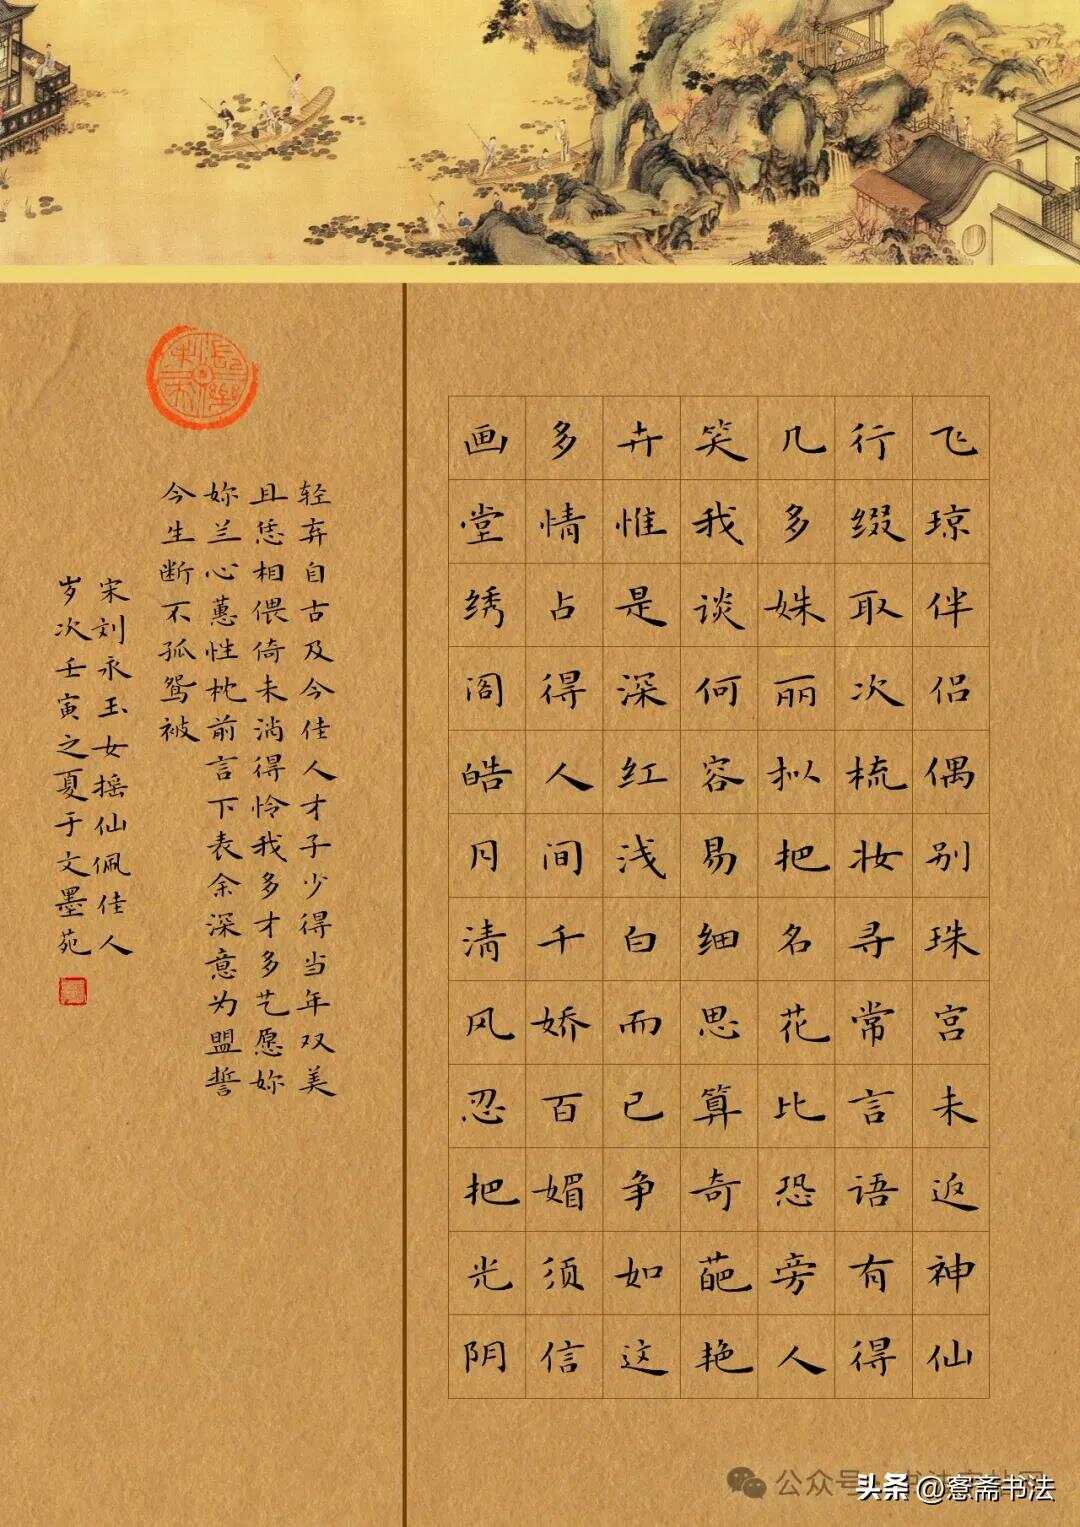 飞琼伴侣偶别珠宫未返神仙
行缀取次梳妆寻常言语有得
几多姝丽拟把名花比恐旁人
笑我谈何容易细思算奇葩艳
卉惟是深红浅白而已争如这
多情占得人间千娇百媚须信
画堂绣阁皓月清风忍把光阴
轻弃自古及今佳人才子少得当年双美
且恁相偎倚未消得怜我多才多艺愿妳
妳兰心蕙性枕前言下表余深意为盟誓
今生断不孤鸳被
宋刘永玉女摇仙佩佳人
岁次壬寅之夏于文墨苑
公众号
头条@愙斋书法